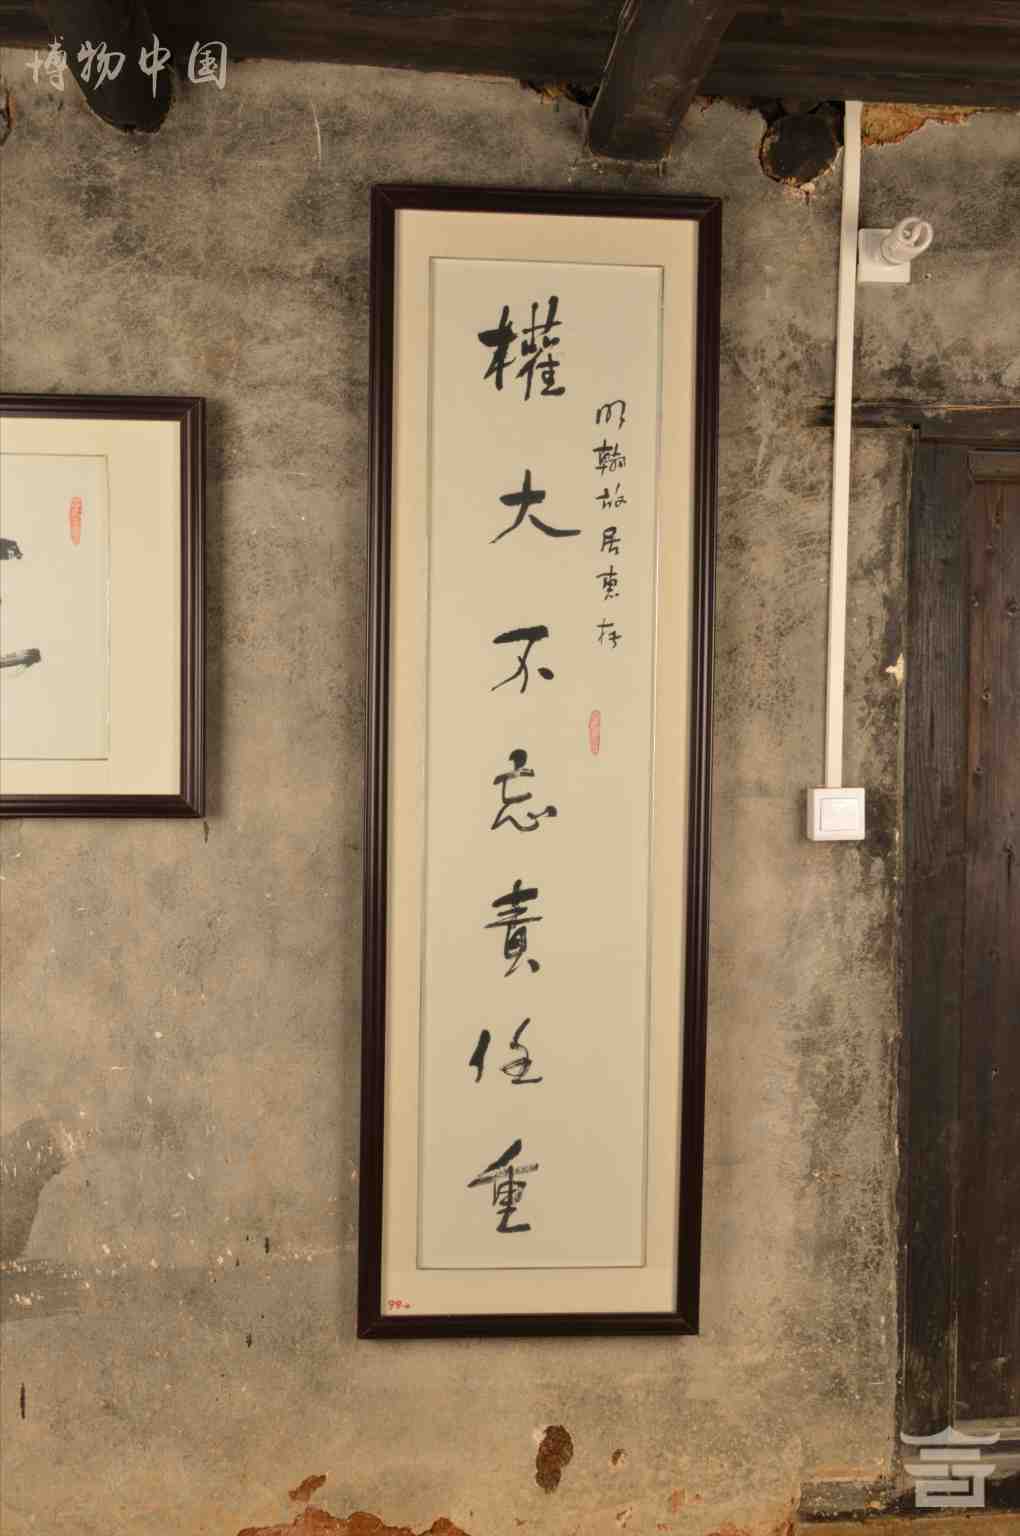 博物中国
明翰故居惠存
權大不忘責任重